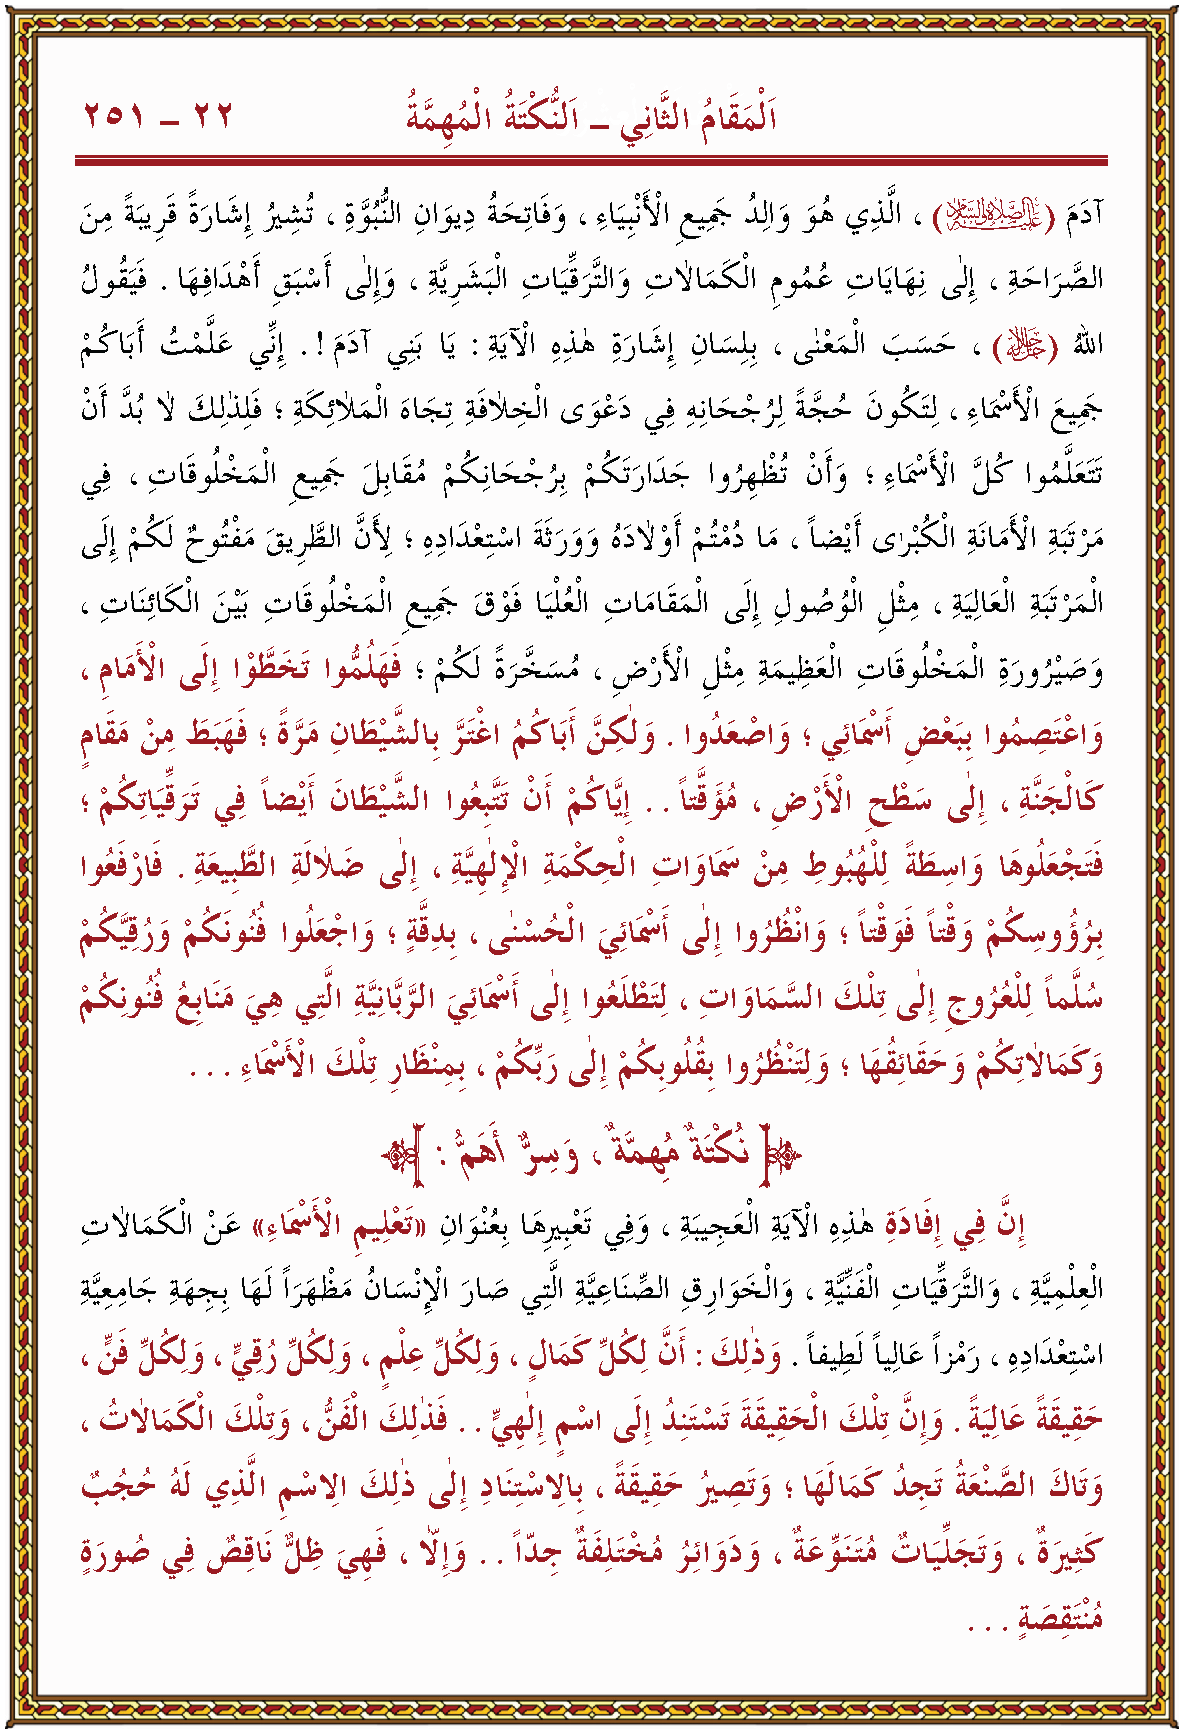 اَلْمَقَامُ الثَّانِي ــ اَلنُّكْتَةُ الْمُهِمَّةُ ٢٢ ــ ٢٥١
آدَمَ (عَلَيْهِ الصَّلَاةُ وَالسَّلَامُ) ، الَّذِي هُوَ وَالِدُ جَمِيعِ الْأَنْبِيَاءِ ، وَفَاتِحَةُ دِيوَانِ النُّبُوَّةِ ، تُشِيرُ إِشَارَةً قَرِيبَةً مِنَ
الصَّرَاحَةِ ، إِلٰى نِهَايَاتِ عُمُومِ الْكَمَالٰاتِ وَالتَّرَقِّيَاتِ الْبَشَرِيَّةِ ، وَإِلٰى أَسْبَقِ أَهْدَافِهَا . فَيَقُولُ
اللهُ (جَلَّ جَلَالُهُ) ، حَسَبَ الْمَعْنٰى ، بِلِسَانِ إِشَارَةِ هٰذِهِ الْآيَةِ : يَا بَنِي آدَمَ ! . إِنِّي عَلَّمْتُ أَبَاكُمْ
جَمِيعَ الْأَسْمَاءِ ، لِتَكُونَ حُجَّةً لِرُجْحَانِهِ فِي دَعْوَى الْخِلٰافَةِ تِجَاهَ الْمَلٰائِكَةِ ؛ فَلِذٰلِكَ لٰا بُدَّ أَنْ
تَتَعَلَّمُوا كُلَّ الْأَسْمَاءِ ؛ وَأَنْ تُظْهِرُوا جَدَارَتَكُمْ بِرُجْحَانِكُمْ مُقَابِلَ جَمِيعِ الْمَخْلُوقَاتِ ، فِي
مَرْتَبَةِ الْأَمَانَةِ الْكُبْرٰى أَيْضاً ، مَا دُمْتُمْ أَوْلٰادَهُ وَوَرَثَةَ اسْتِعْدَادِهِ ؛ لِأَنَّ الطَّرِيقَ مَفْتُوحٌ لَكُمْ إِلَى
الْمَرْتَبَةِ الْعَالِيَةِ ، مِثْلِ الْوُصُولِ إِلَى الْمَقَامَاتِ الْعُلْيَا فَوْقَ جَمِيعِ الْمَخْلُوقَاتِ بَيْنَ الْكَائِنَاتِ ،
وَصَيْرُورَةِ الْمَخْلُوقَاتِ الْعَظِيمَةِ مِثْلِ الْأَرْضِ ، مُسَخَّرَةً لَكُمْ ؛ فَهَلُمُّوا تَخَطَّوْا إِلَى الْأَمَامِ ،
وَاعْتَصِمُوا بِبَعْضِ أَسْمَائِي ؛ وَاصْعَدُوا . وَلٰكِنَّ أَبَاكُمُ اغْتَرَّ بِالشَّيْطَانِ مَرَّةً ؛ فَهَبَطَ مِنْ مَقَامٍ
كَالْجَنَّةِ ، إِلٰى سَطْحِ الْأَرْضِ ، مُؤَقَّتاً . . إِيَّاكُمْ أَنْ تَتَّبِعُوا الشَّيْطَانَ أَيْضاً فِي تَرَقِّيَاتِكُمْ ؛
فَتَجْعَلُوهَا وَاسِطَةً لِلْهُبُوطِ مِنْ سَمَاوَاتِ الْحِكْمَةِ الْإِلٰهِيَّةِ ، إِلٰى ضَلٰالَةِ الطَّبِيعَةِ . فَارْفَعُوا
بِرُؤُوسِكُمْ وَقْتاً فَوَقْتاً ؛ وَانْظُرُوا إِلٰى أَسْمَائِيَ الْحُسْنٰى ، بِدِقَّةٍ ؛ وَاجْعَلُوا فُنُونَكُمْ وَرُقِيَّكُمْ
سُلَّماً لِلْعُرُوجِ إِلٰى تِلْكَ السَّمَاوَاتِ ، لِتَطْلَعُوا إِلٰى أَسْمَائِيَ الرَّبَّانِيَّةِ الَّتِي هِيَ مَنَابِعُ فُنُونِكُمْ
وَكَمَالٰاتِكُمْ وَحَقَائِقُهَا ؛ وَلِتَنْظُرُوا بِقُلُوبِكُمْ إِلٰى رَبِّكُمْ ، بِمِنْظَارِ تِلْكَ الْأَسْمَاءِ . . .
نُكْتَةٌ مُهِمَّةٌ ، وَسِرٌّ أَهَمُّ :
إِنَّ فِي إِفَادَةِ هٰذِهِ الْآيَةِ الْعَجِيبَةِ ، وَفِي تَعْبِيرِهَا بِعُنْوَانِ «تَعْلِيمِ الْأَسْمَاءِ» عَنْ الْكَمَالٰاتِ
الْعِلْمِيَّةِ ، وَالتَّرَقِّيَاتِ الْفَنِّيَّةِ ، وَالْخَوَارِقِ الصِّنَاعِيَّةِ الَّتِي صَارَ الْإِنْسَانُ مَظْهَراً لَهَا بِجِهَةِ جَامِعِيَّةِ
اسْتِعْدَادِهِ ، رَمْزاً عَالِياً لَطِيفاً . وَذٰلِكَ : أَنَّ لِكُلِّ كَمَالٍ ، وَلِكُلِّ عِلْمٍ ، وَلِكُلِّ رُقِيٍّ ، وَلِكُلِّ فَنٍّ ،
حَقِيقَةً عَالِيَةً . وَإِنَّ تِلْكَ الْحَقِيقَةَ تَسْتَنِدُ إِلَى اسْمٍ إِلٰهِيٍّ . . فَذٰلِكَ الْفَنُّ ، وَتِلْكَ الْكَمَالٰاتُ ،
وَتَاكَ الصَّنْعَةُ تَجِدُ كَمَالَهَا ؛ وَتَصِيرُ حَقِيقَةً ، بِالِاسْتِنَادِ إِلٰى ذٰلِكَ الِاسْمِ الَّذِي لَهُ حُجُبٌ
كَثِيرَةٌ ، وَتَجَلِّيَاتٌ مُتَنَوِّعَةٌ ، وَدَوَائِرُ مُخْتَلِفَةٌ جِدّاً . . وَإِلّٰا ، فَهِيَ ظِلٌّ نَاقِصٌ فِي صُورَةٍ
مُنْتَقِصَةٍ . . .